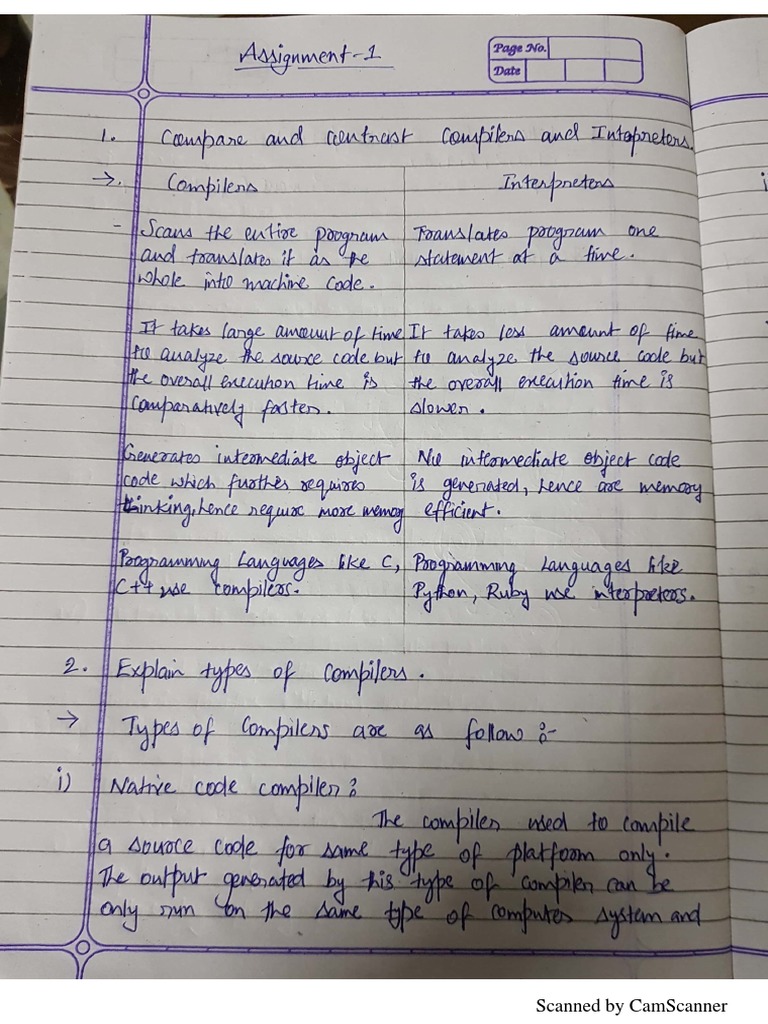 Assignment-1
Page No.
Date
1. Compare and contrast Compilers and Intopreters.
→. Compilers
Interpreters
- Scans the entire program
and translates it as the
whole into machine code.
Translates program one
statement at a time.
It takes large amount of time
to analyze the source code but
the overall execution time is
comparatively faster.
It takes less amount of time
to analyze the source code but
the overall execution time is
slower.
Generates intermediate object
code which further requires
thinking, hence require more memory
No intermediate object code
is generated, hence are memory
efficient.
Programming Languages like C,
C++ use compilers.
Programming Languages like
Python, Ruby use interpreters.
2. Explain types of compilers.
→ Types of Compilers are as follow :-
i) Native code compiler :
The compiler used to compile
a source code for same type of platform only.
The output generated by this type of compiler can be
only run on the same type of computer system and
Scanned by CamScanner